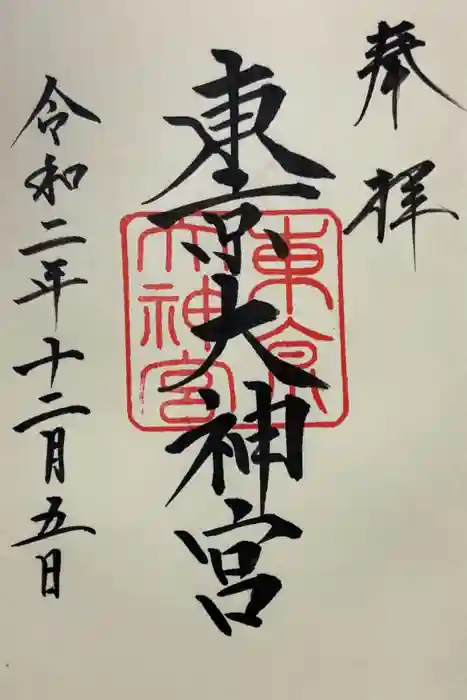 奉拝
東京大神宮
東京大神宮
令和二年十二月五日